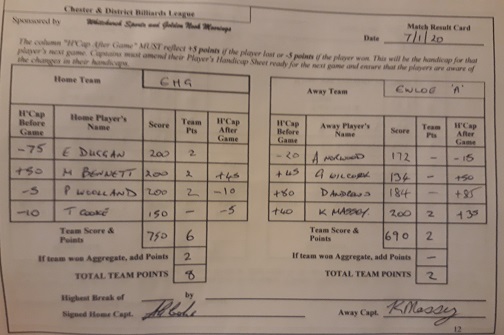 Chester & District Billiards League
Sponsored by Whitchurch Sports and Golden Nook Moorings
Match Result Card
Date 7/1/20
The column "H'Cap After Game" MUST reflect +5 points if the player lost or -5 points if the player won. This will be the handicap for that
player's next game. Captains must amend their Player's Handicap Sheet ready for the next game and ensure that the players are aware of
the changes in their handicaps.
Home Team EMG
H'Cap Before Game Home Player's Name Score Team Pts H'Cap After Game
-75 E DUGGAN 200 2
+50 M BENNETT 200 2 +45
-5 P WOOLLAND 200 2 -10
-10 T COOKE 150 - -5
Team Score & Points 750 6
If team won Aggregate, add Points 2
TOTAL TEAM POINTS 8
Away Team 'A'
H'Cap Before Game Away Player's Name Score Team Pts H'Cap After Game
-20 A 172 - -15
+45 G 134 - +50
+80 D 184 - +85
+40 K MASSEY 200 2 +35
Team Score & Points 690 2
If team won Aggregate, add Points -
TOTAL TEAM POINTS 2
Highest Break of by
Signed Home Capt.
Away Capt. K Massey
12